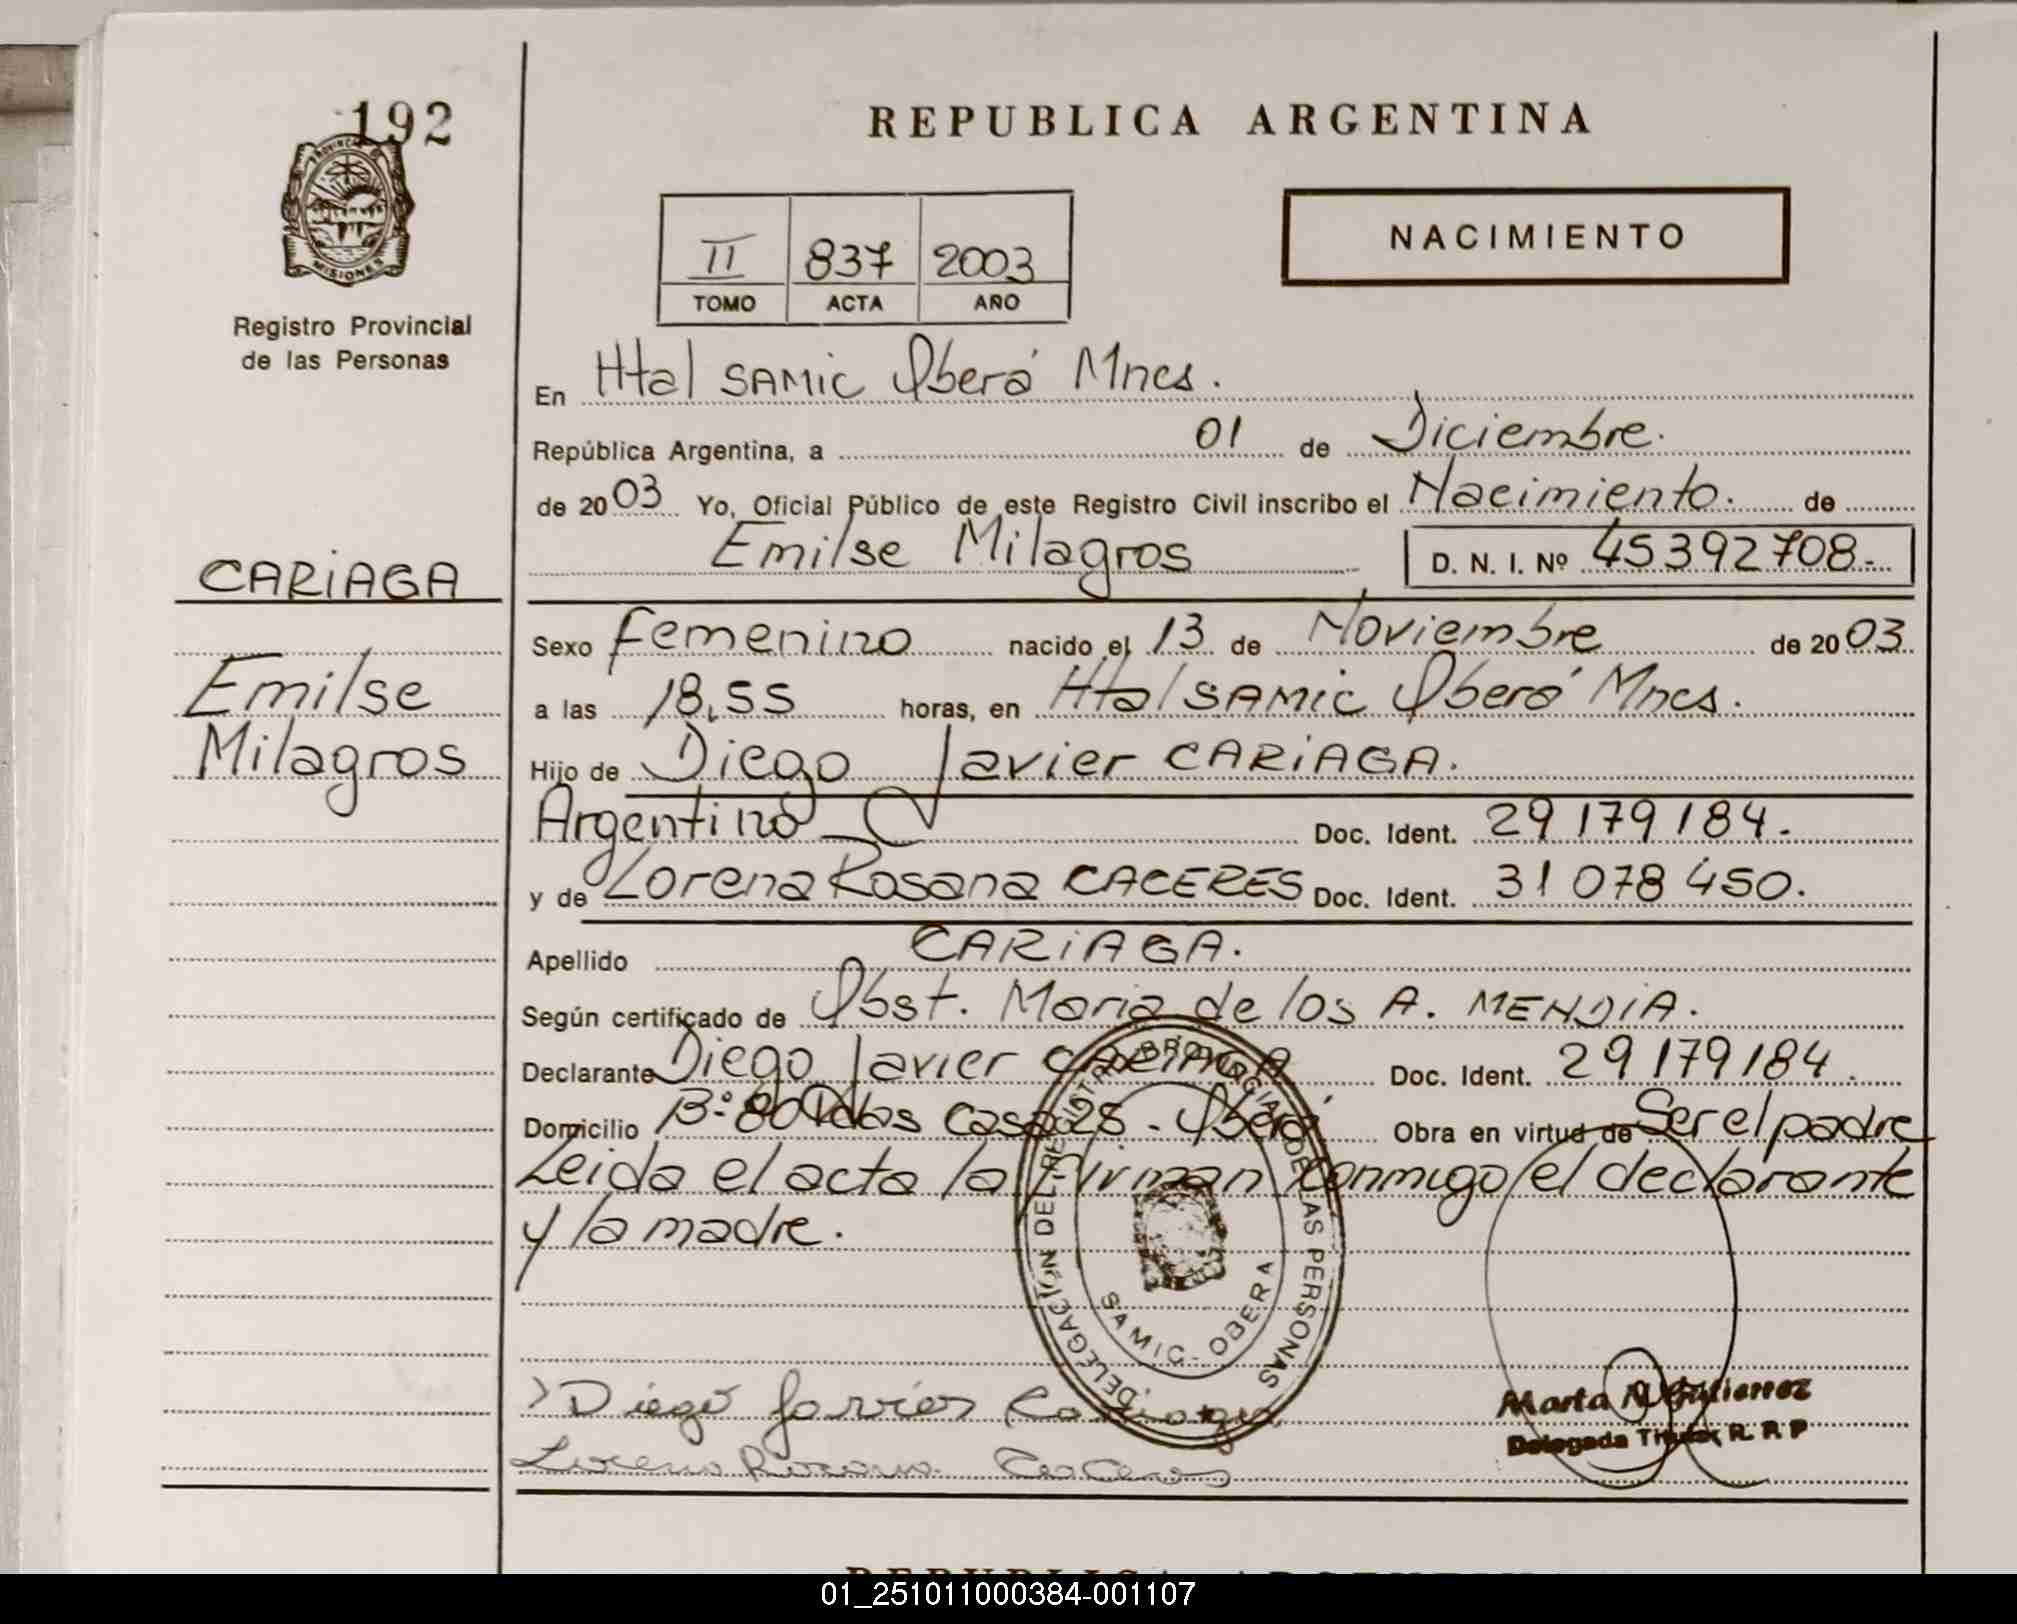 192
PROVINCIA DE
MISIONES
Registro Provincial
de las Personas
CARIAGA
Emilse
Milagros
REPUBLICA ARGENTINA
II 837 2003
TOMO ACTA AÑO
NACIMIENTO
En Htal SAMIC Oberá Mnes.
República Argentina, a 01 de Diciembre.
de 2003 Yo, Oficial Público de este Registro Civil inscribo el Nacimiento. de
Emilse Milagros D. N. I. Nº 45392708.-
Sexo femenino nacido el 13 de Noviembre de 2003
a las 18,55 horas, en Htal SAMIC Oberá Mnes.
Hijo de Diego Javier CARIAGA.
Argentino Doc. Ident. 29179184.
y de Lorena Rosana CACERES Doc. Ident. 31 078 450.
Apellido CARIAGA.
Según certificado de Obst. Maria de los A. MENDIA.
Declarante Diego Javier CARIAGA Doc. Ident. 29179184.
Domicilio B° 80 Vdas Casa 25 - Oberá Obra en virtud de Ser el padre
Leida el acta la firman conmigo el declarante
y la madre.
DELEGACION DEL REGISTRO PROVINCIAL DE LAS PERSONAS
SAMIC - OBERA
Diego Javier Cariaga
Lorena Rosana Caceres
Marta N. Gutierrez
Delegada Titular R. P. P
REPUBLICA ARGENTINA
01_251011000384-001107